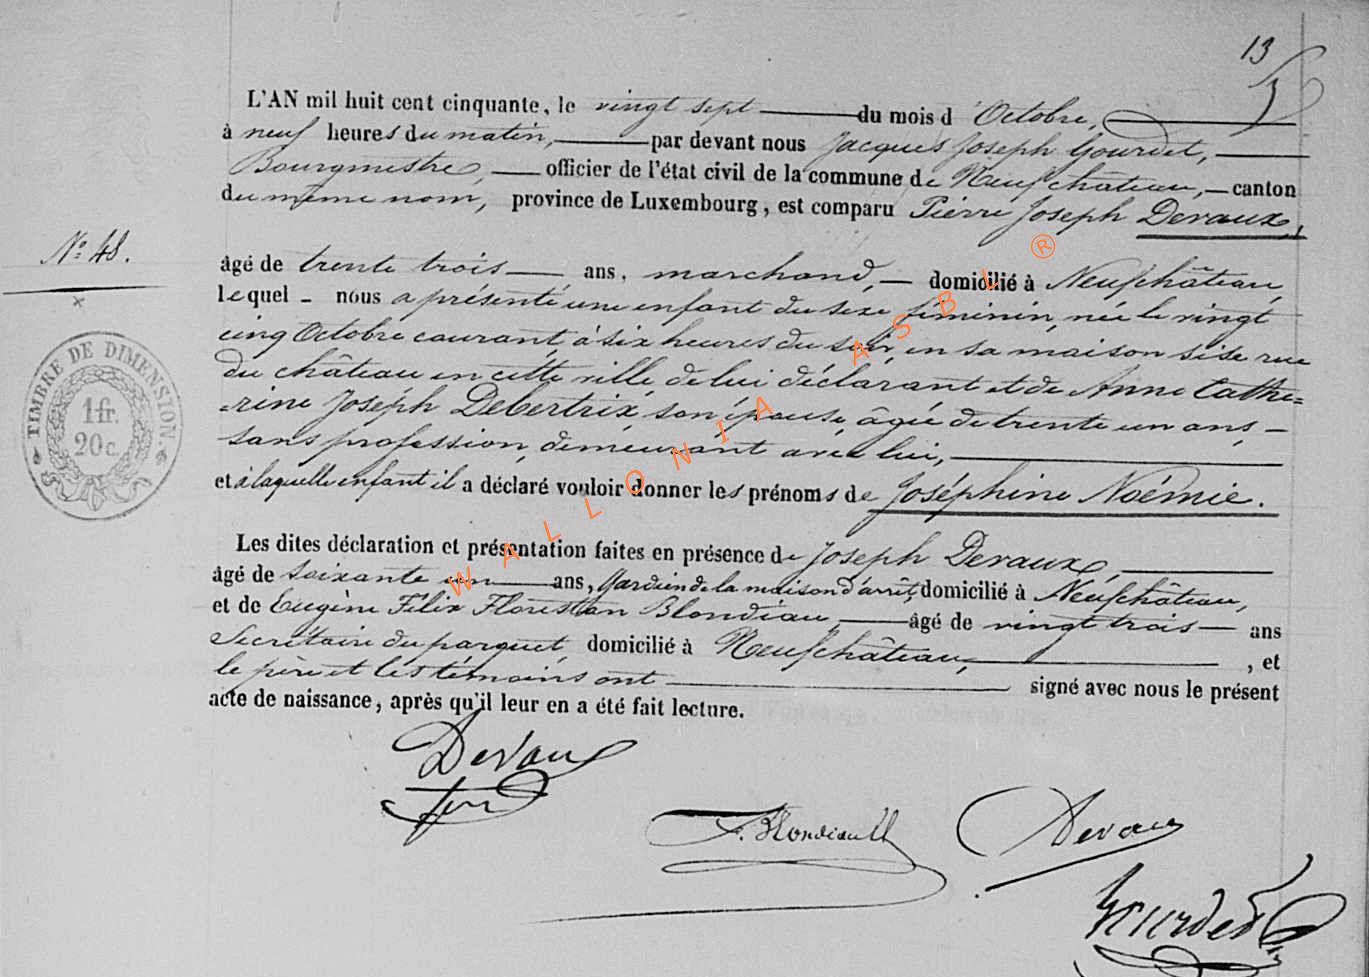 13
L'AN mil huit cent cinquante, le vingt sept du mois d'Octobre,
à neuf heures du matin, par devant nous Jacques Joseph Gourdet,
Bourgmestre, officier de l'état civil de la commune de Neufchâteau, canton
du même nom, province de Luxembourg, est comparu Pierre Joseph Devaux,
N° 48.
âgé de trente trois ans, marchand, domicilié à Neufchâteau,
Lequel nous a présenté une enfant du sexe féminin, née le vingt
cinq Octobre courant, à six heures du soir, en sa maison sise rue
du château en cette ville de lui déclarant et de Anne Cathe=
=rine Joseph Debertrix, son épouse, âgée de trente un ans,
sans profession, demeurant avec lui,
et à laquelle enfant il a déclaré vouloir donner les prénoms de Joséphine Noémie.
Les dites déclaration et présentation faites en présence de Joseph Devaux,
âgé de soixante un ans, Gardien de la maison d'arrêt, domicilié à Neufchâteau,
et de Eugène Félix Florestan Blondiau, âgé de vingt trois ans
Secrétaire du parquet, domicilié à Neufchâteau, , et
le père et les témoins ont signé avec nous le présent
acte de naissance, après qu'il leur en a été fait lecture.
TIMBRE DE DIMENSION.
1 fr.
20 c.
WALLONIA ASBL ®
Devaux
F. Blondiau
Devaux
Gourdet